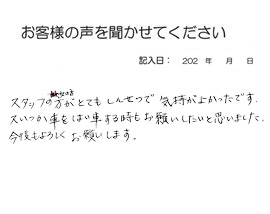 お客様の声を聞かせてください
記入日： 202 年 月 日
スタッフの方がとてもしんせつで 気持がよかったです。
又いつか車をはい車する時もお願いしたいと思いました。
今後もよろしく お願いします。